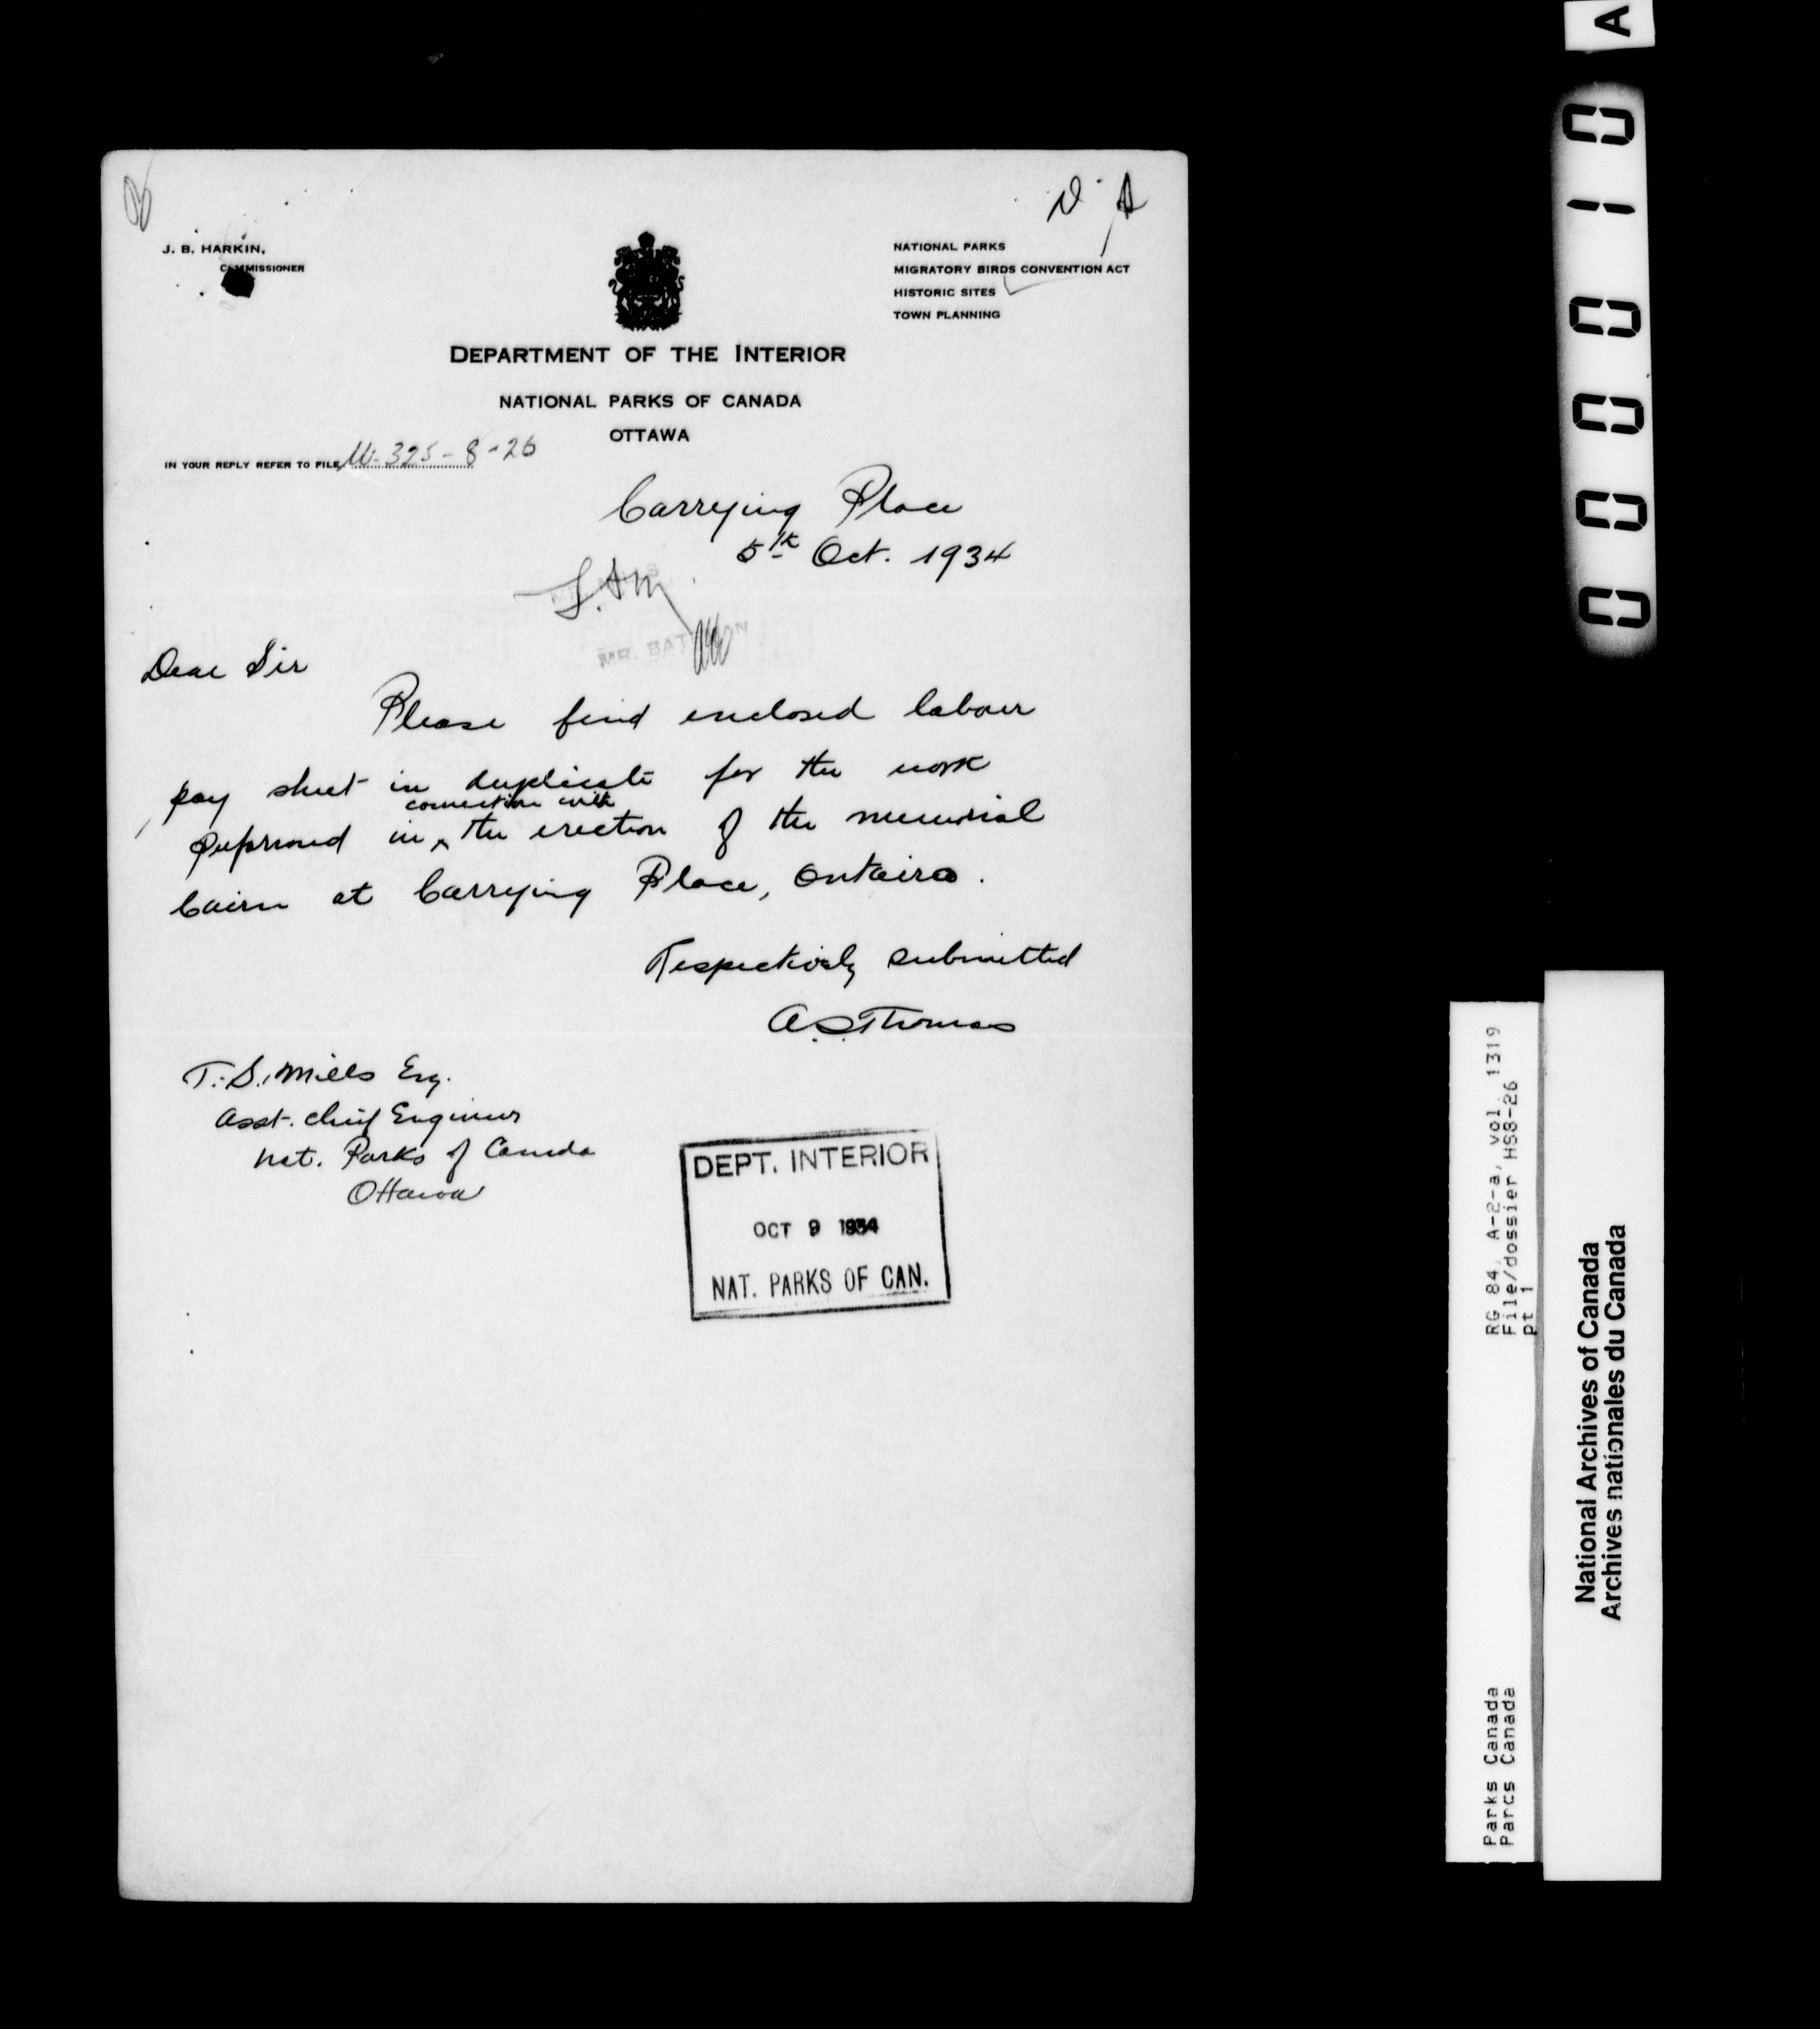 J. B. HARKIN,
COMMISSIONER
NATIONAL PARKS
MIGRATORY BIRDS CONVENTION ACT
HISTORIC SITES
TOWN PLANNING
DEPARTMENT OF THE INTERIOR
NATIONAL PARKS OF CANADA
OTTAWA
IN YOUR REPLY REFER TO FILE W-325-8-26
Carrying Place
5th Oct. 1934
MR. BATEMAN
Dear Sir
Please find enclosed labour
pay sheet in duplicate for the work
connection with
performed in ^ the erection of the memorial
Cairn at Carrying Place, Ontairo.
Respectively submitted
A.S. Thomas
T. S. Mills Esq.
Asst. Chief Engineer
Nat. Parks of Canada
Ottawa
DEPT. INTERIOR
OCT 9 1934
NAT. PARKS OF CAN.
A
000010
RG 84, A-2-a, vol. 1319
File/dossier HS8-26
pt 1
Parks Canada
Parcs Canada
National Archives of Canada
Archives nationales du Canada